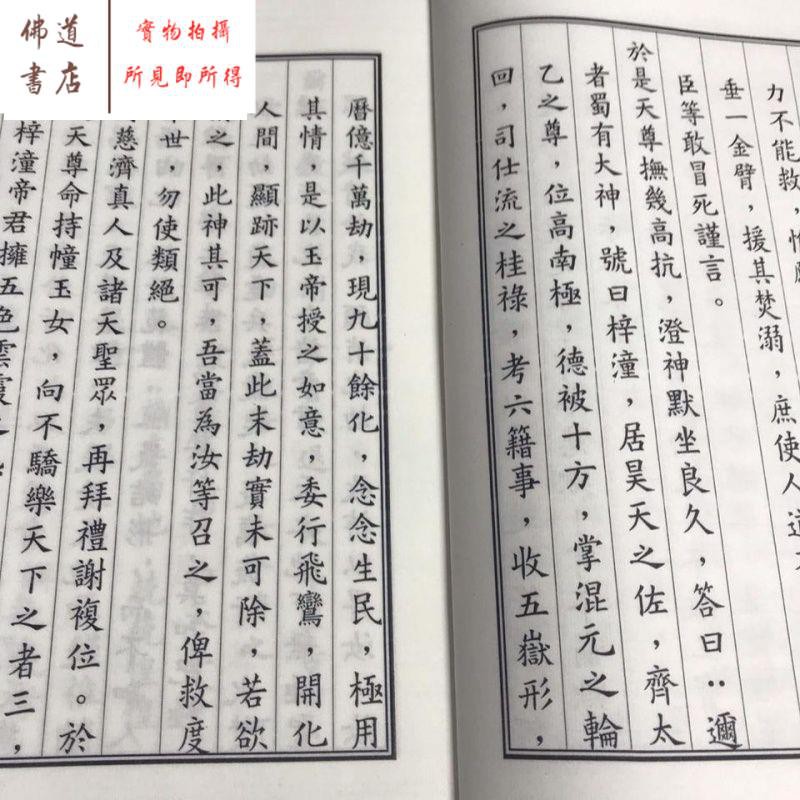 佛道
書店
實物拍攝
所見即所得
力不能救，惟
垂一金臂，援其焚溺，庶使人
臣等敢冒死謹言。
於是天尊撫幾高抗，澄神默坐良久，答曰：邇
者蜀有大神，號曰梓潼，居昊天之佐，齊太
乙之尊，位高南極，德被十方，掌混元之輪
回，司仕流之桂祿，考六籍事，收五嶽形，
曆億千萬劫，現九十餘化，念念生民，極用
其情，是以玉帝授之如意，委行飛鸞，開化
人間，顯跡天下，蓋此末劫實未可除，若欲
之，此神其可，吾當為汝等召之，俾救度
世，勿使類絕。
慈濟真人及諸天聖眾，再拜禮謝複位。於
天尊命持幢玉女，向不驕樂天下之者三，
梓潼帝君擁五色雲霞